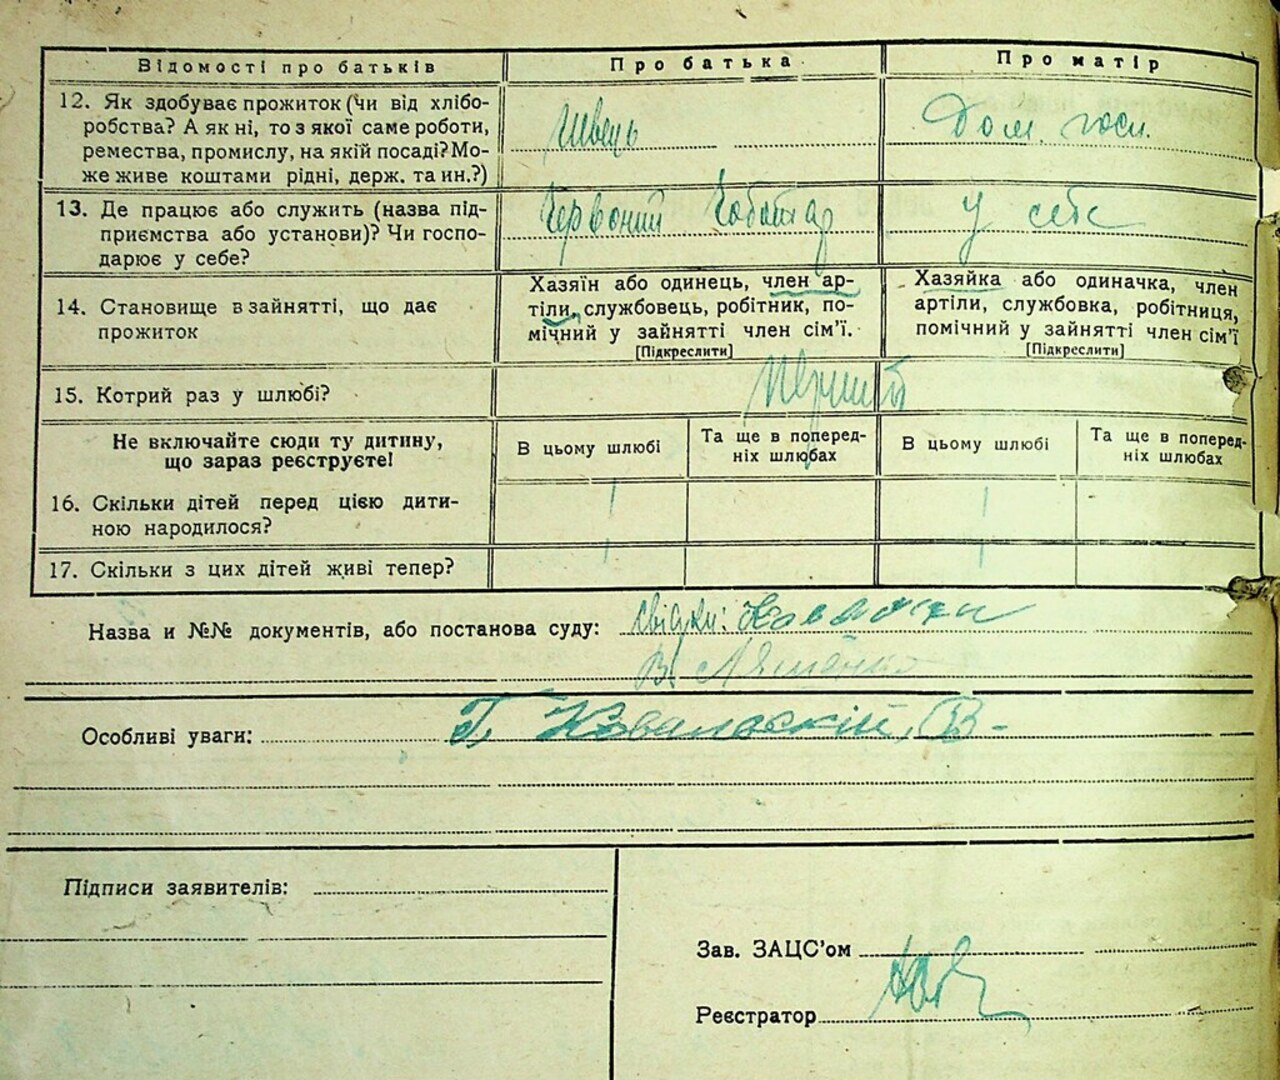 Відомості про батьків
Про батька
Про матір
12. Як здобуває прожиток (чи від хлібо-
робства? А як ні, то з якої саме роботи,
ремества, промислу, на якій посаді? Мо-
же живе коштами рідні, держ. та ин.?)
Швець
Дом. госп.
13. Де працює або служить (назва під-
приємства або установи)? Чи госпо-
дарює у себе?
Червоний Чоботар
у себе
14. Становище в зайнятті, що дає
прожиток
Хазяїн або одинець, член ар-
тіли, службовець, робітник, по-
мічний у зайнятті член сім'ї.
[Підкреслити]
Хазяйка або одиначка, член
артіли, службовка, робітниця,
помічний у зайнятті член сім'ї
[Підкреслити]
15. Котрий раз у шлюбі?
Перший
Не включайте сюди ту дитину,
що зараз реєструєте!
В цьому шлюбі
Та ще в поперед-
ніх шлюбах
В цьому шлюбі
Та ще в поперед-
ніх шлюбах
16. Скільки дітей перед цією дити-
ною народилося?
1
1
17. Скільки з цих дітей живі тепер?
1
1
Назва и №№ документів, або постанова суду:
свідки:
В. Ляшенко
Особливі уваги:
Г. Ковальскій, В-
Підписи заявителів:
Зав. ЗАЦС'ом
Реєстратор